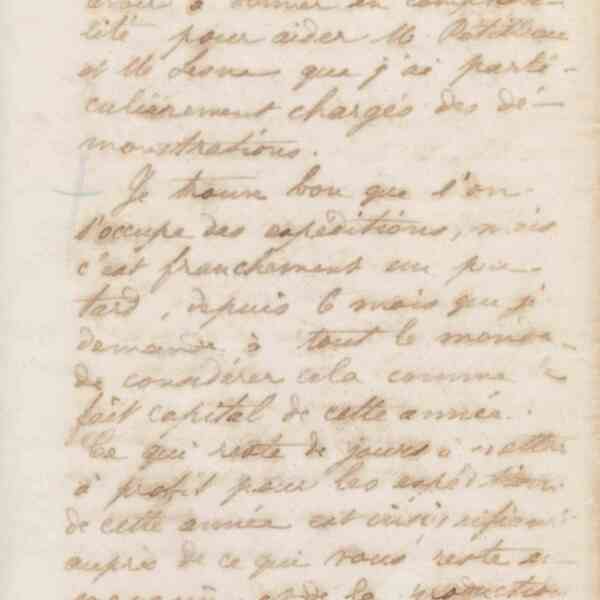 avoir à donner en comptabi-
lité pour aider M.
et M. Lesne que j'ai parti-
culièrement chargés des dé-
monstrations.
Je trouve bon que l'on
s'occupe des expéditions, mais
c'est franchement un peu
tard, depuis 6 mois que je
demande à tout le monde
de considérer cela comme le
fait capital de cette année.
Ce qui reste de jours à mettre
à profit pour les expéditions
de cette année est insignifiant
auprès de ce qui vous reste en
magasin et de la production